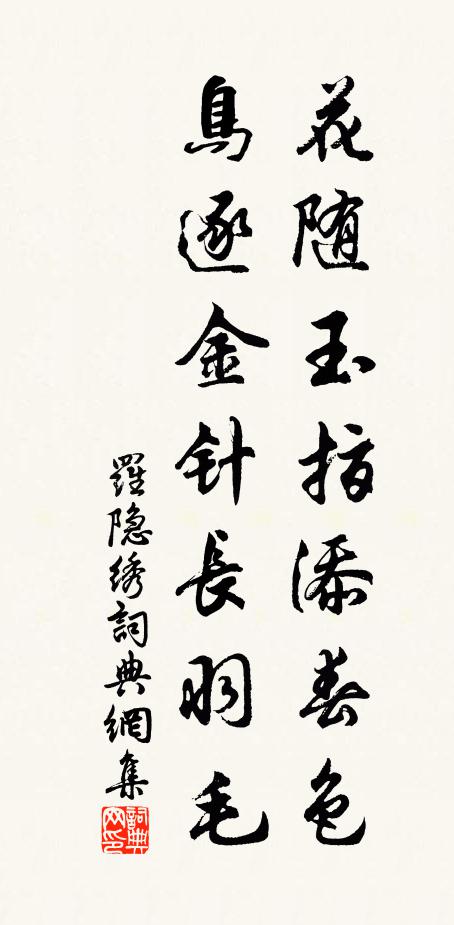 花随玉指添春色
鳥逐金针長羽毛
羅隐绣詞典網集
詞典网印